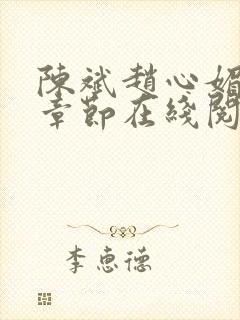 陳斌趙心媚
章節在綫閱
李恵德